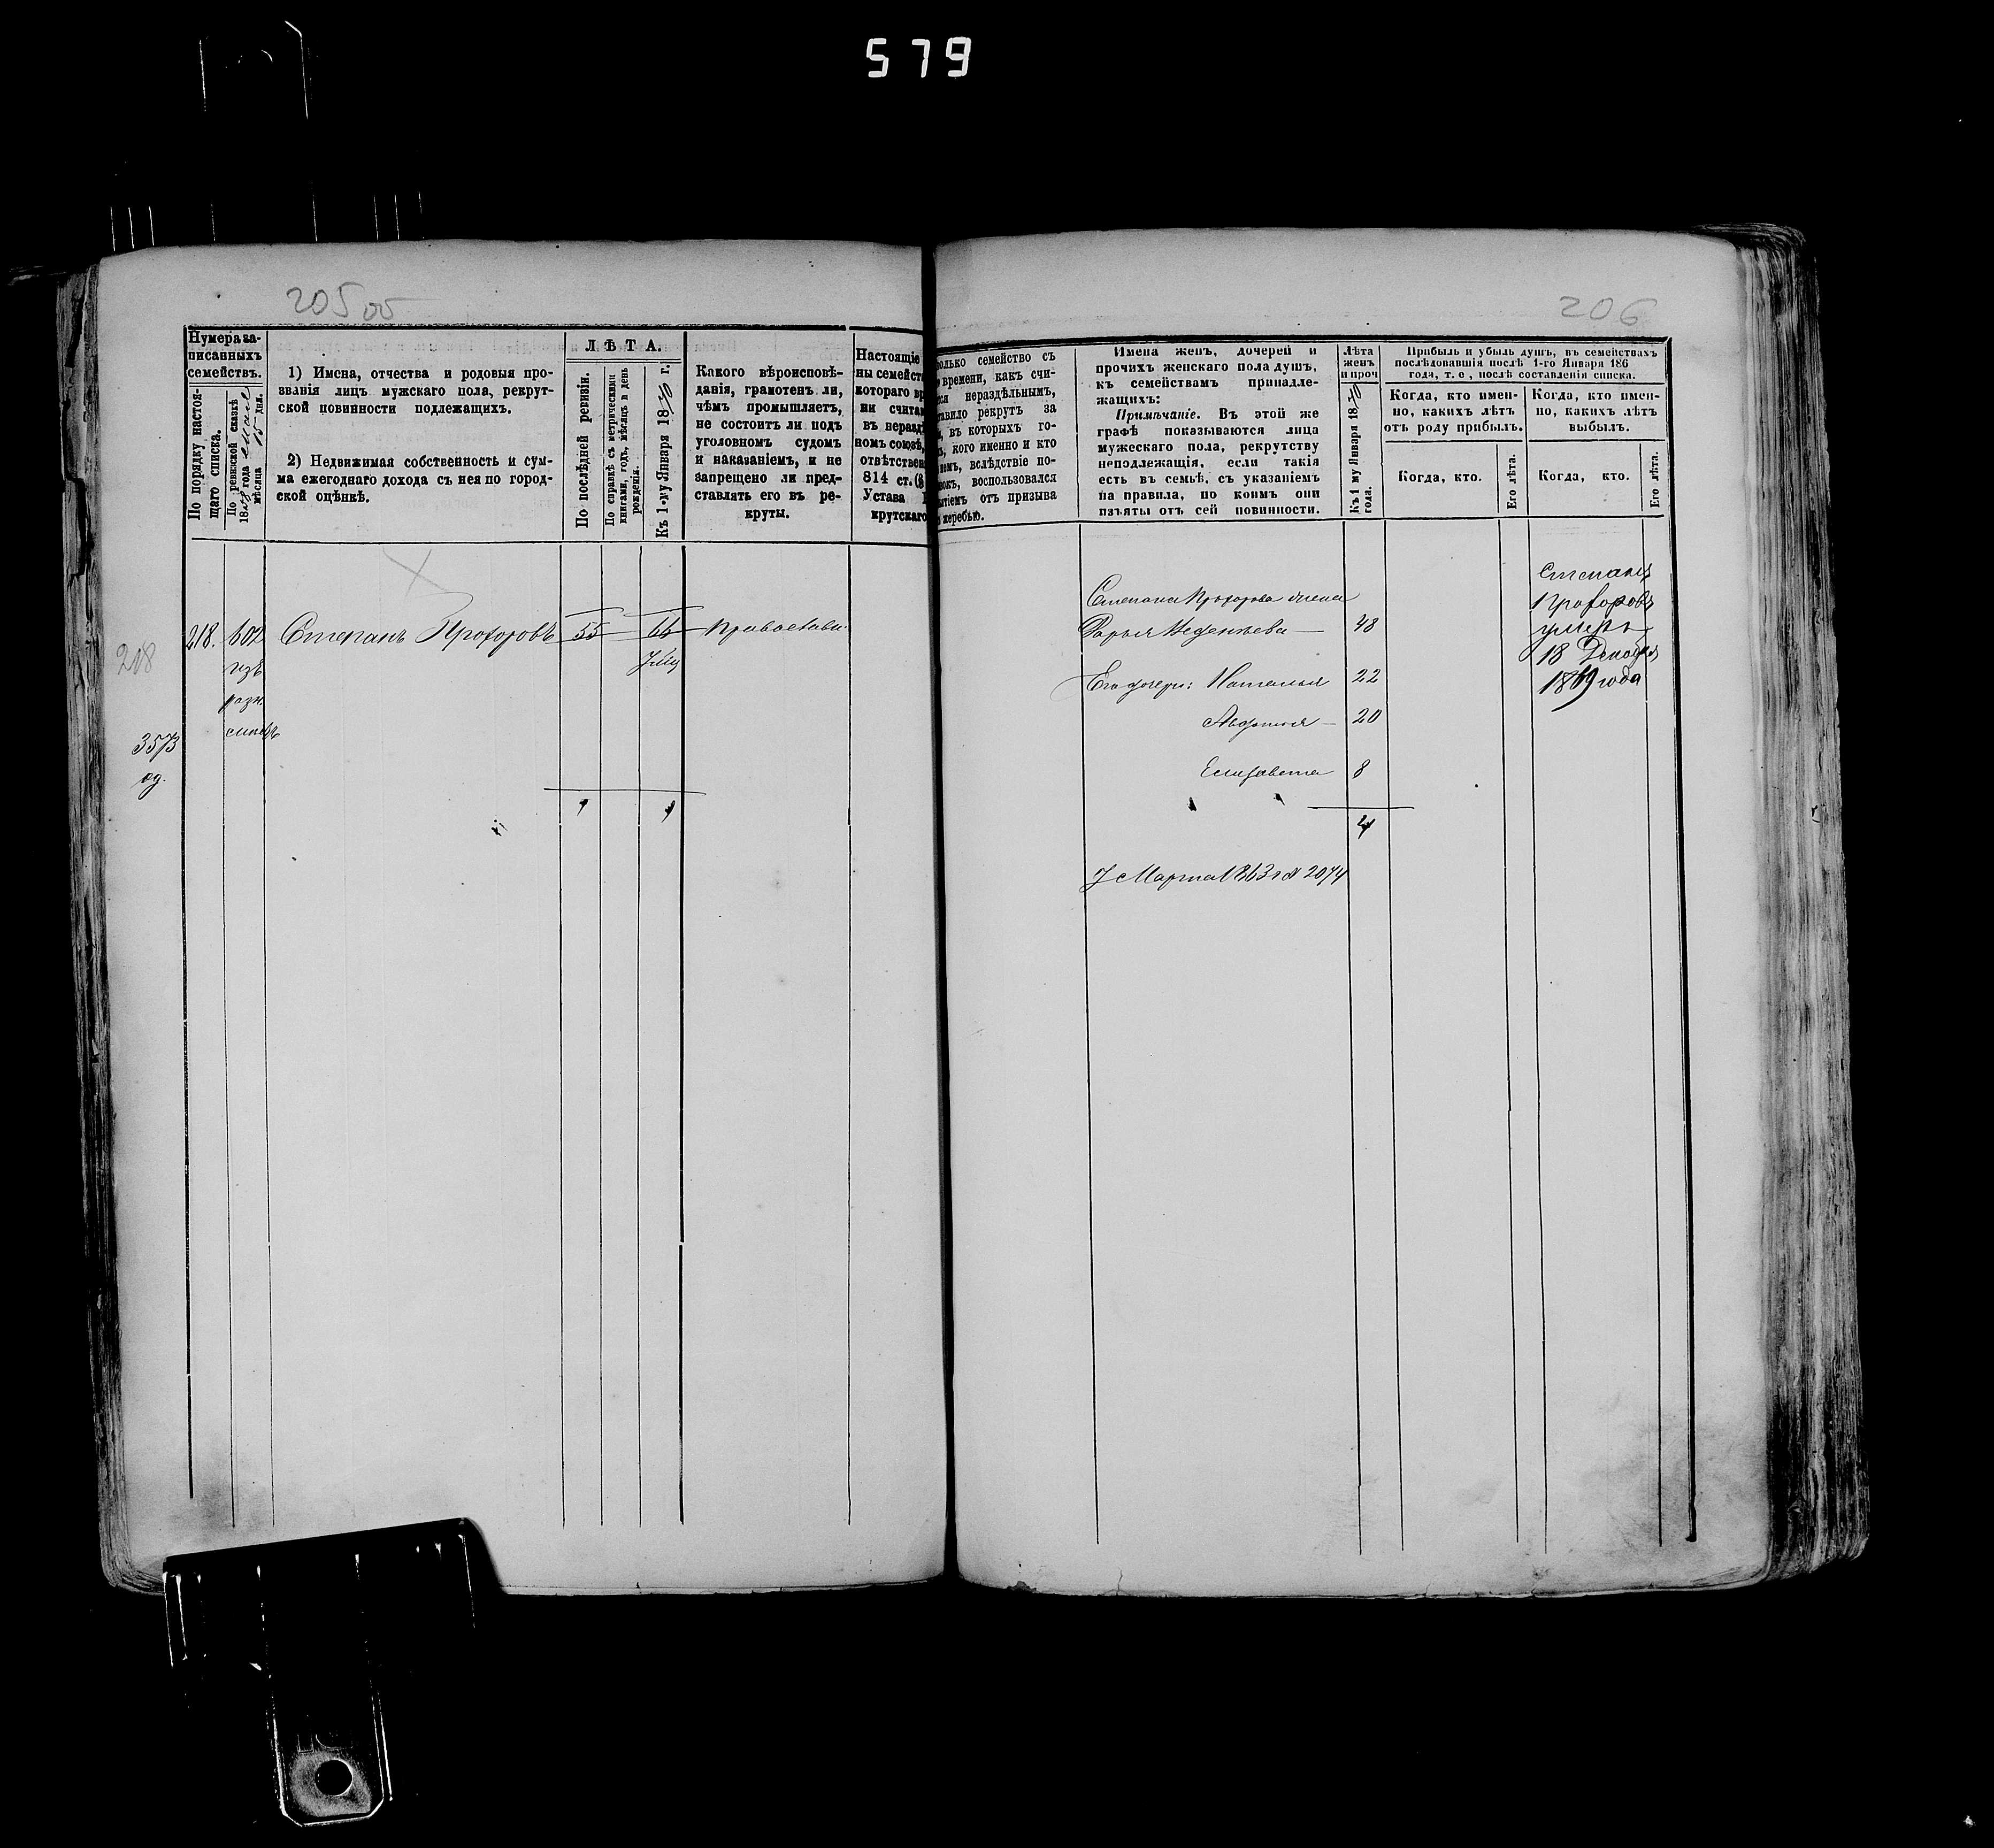 579
205 об
206
Нумера за-
писанныхъ
семействъ.
По порядку настоя-
щаго списка.
По ревизской сказкѣ
18 года
мѣсяца 15 дня.
1) Имена, отчества и родовыя про-
званія лицъ мужскаго пола, рекрут-
ской повинности подлежащихъ.
2) Недвижимая собственность и сум-
ма ежегоднаго дохода съ нея по город-
ской оцѣнкѣ.
ЛѢТА.
По послѣдней ревизіи.
По справкѣ съ метрическими
книгами, годъ, мѣсяцъ и день
рожденія.
Къ 1-му Января 1870 г.
Какого вѣроисповѣ-
данія, грамотенъ ли,
чѣмъ промышляетъ,
не состоитъ ли подъ
уголовномъ судомъ
и наказаніемъ, и не
запрещено ли пред-
ставлять его въ ре-
круты.
Настоящіе
ны семейст
котораго вр
ни счита
въ нераз
номъ союзѣ,
отвѣтствен
814 ст.
Устава
крутскаго
колько семейство съ
времени, какъ счи-
тся нераздѣльнымъ,
тавило рекрутъ за
, въ которыхъ го-
, кого именно и кто
вслѣдствіе по-
воспользовался
тіемъ отъ призыва
жеребью.
Имена женъ, дочерей и
прочихъ женскаго пола душъ,
къ семействамъ принадле-
жащихъ:
Примѣчаніе. Въ этой же
графѣ показываются лица
мужескаго пола, рекрутству
неподлежащія, если такія
есть въ семьѣ, съ указаніемъ
на правила, по коимъ они
изъяты отъ сей повинности.
Лѣта
женъ
и проч
Къ 1 му Января 1870
года.
Прибыль и убыль душъ, въ семействахъ
послѣдовавшія послѣ 1-го Января 186
года, т. е., послѣ составленія списка.
Когда, кто имен-
но, какихъ лѣтъ
отъ роду прибылъ.
Когда, кто имен-
но, какихъ лѣтъ
выбылъ.
Когда, кто.
Его лѣта.
Когда, кто.
Его лѣта.
218
218. 602 Степанъ Прохоровъ 55 66 Православн.
изъ
разн.
3573
од.
1 1
Степана Прохорова жена
Дарья 48
Его дочери: Наталья 22
Авдотья 20
Елизавета 8
4
7 Марта 1863 г № 2074
Степанъ
Прохоровъ
умеръ
18 Декабря
1869 года